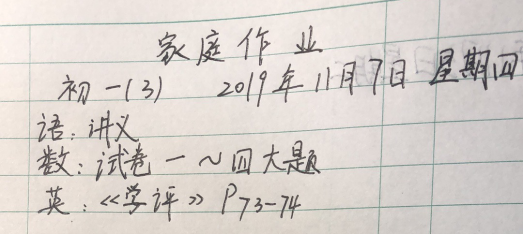 家庭作业
初一(3) 2019年11月7日 星期四
语：讲义
数：试卷一~四大题
英：《学评》P73-74